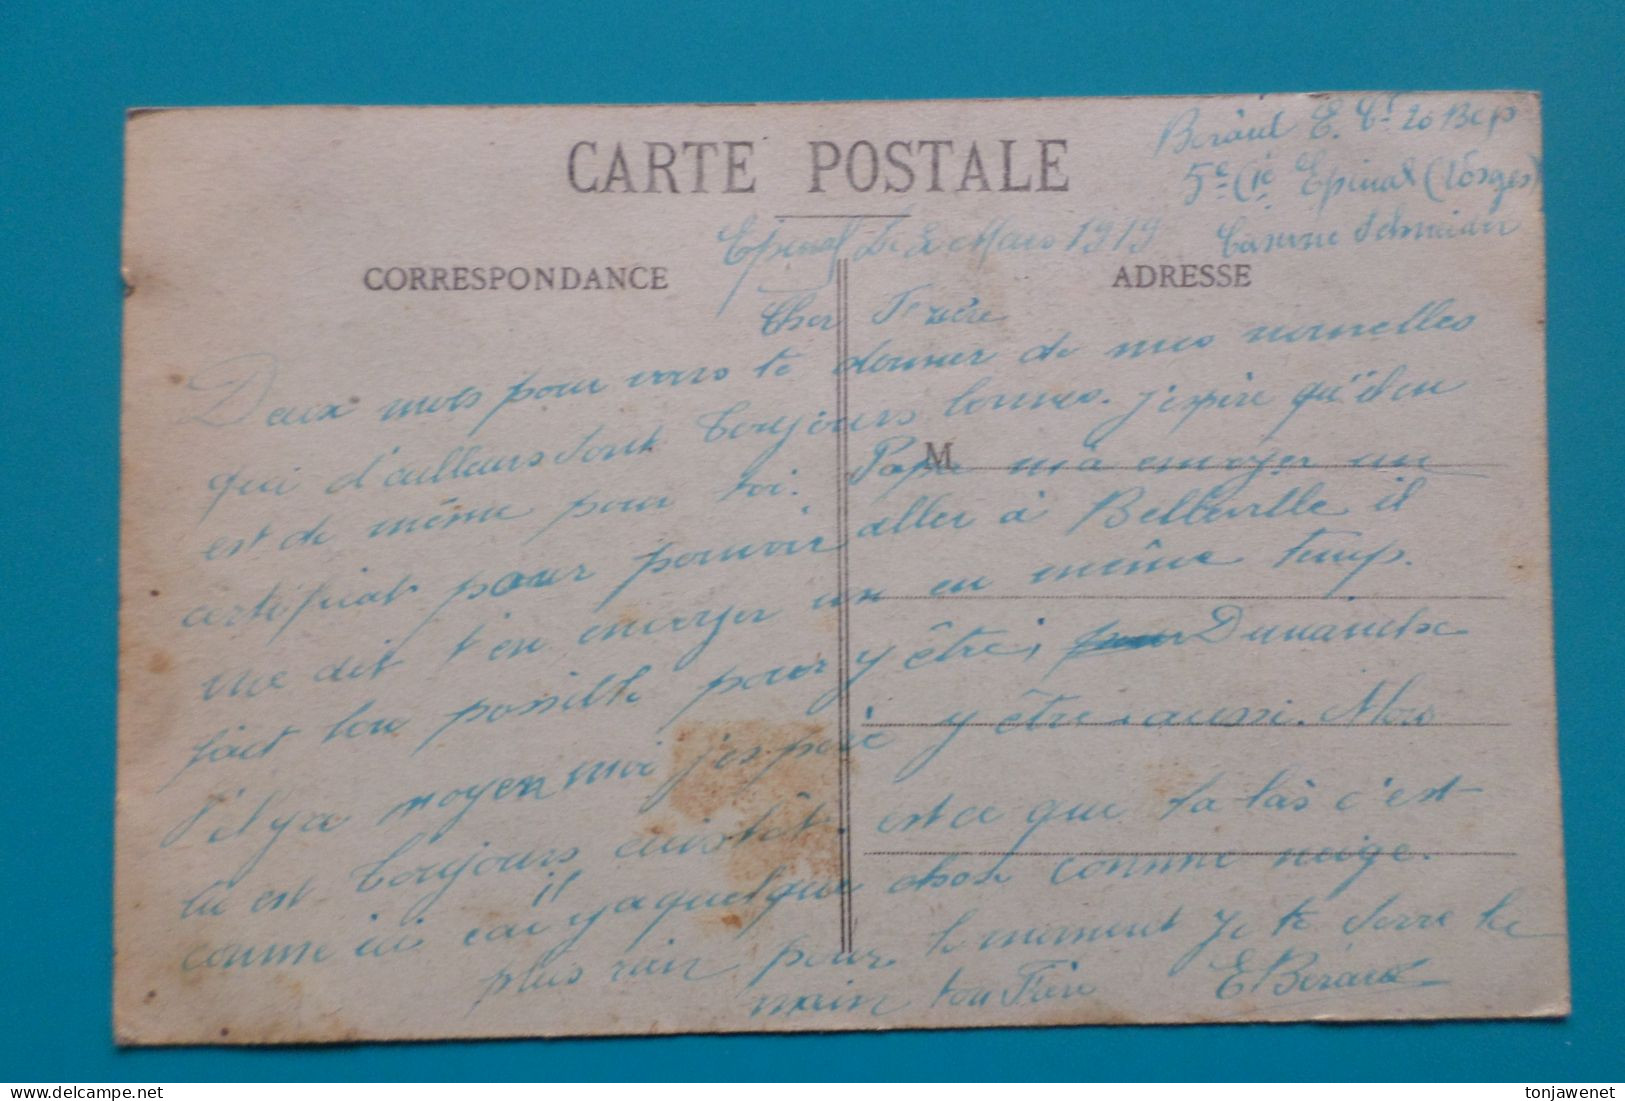 CARTE POSTALE
Béraud E. Ct 20 Bcp
5e Cie Epinal (Vosges)
Caserne Schneider
Epinal Le 2 Mars 1919
CORRESPONDANCE
ADRESSE
Cher Frère
Deux mots pour vous te donner de mes nouvelles
qui d'ailleurs sont toujours bonnes. j'espère qu'il en
est de même pour toi. Papa m'a envoyer un
M
certificat pour pouvoir aller à Belleville il
me dit t'en envoyer un en même temp.
fait ton possible pour y être, pour Dimanche
s'il y a moyen moi j'espère y être aussi. Mon
tu est toujours est ce que ta-bas c'est
comme ici car il y a quelque chose comme neige.
plus rien pour le moment je te serre la
main ton Frère E Béraud
tonjawenet